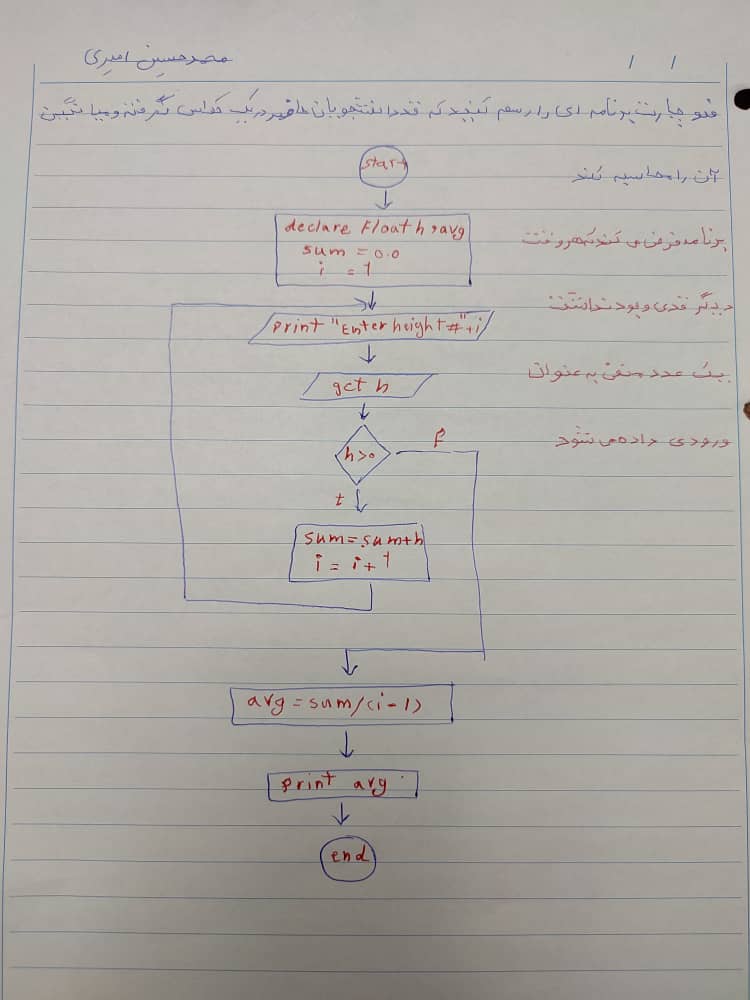 محمدحسین امیری
/ /
فلوچارت برنامه ای را رسم کنید که قد دانشجویان حاضر در یک کلاس گرفته و میانگین
آن را محاسبه کند
برنامه فرض می کند که هر وقت
دیگر قدی وجود نداشت
یک عدد منفی به عنوان
ورودی داده می شود
start
declare Float h, avg
sum = 0.0
i = 1
print "Enter height #"+i
get h
h>0
F
t
sum = sum+h
i = i + 1
avg = sum/(i-1)
print avg
end